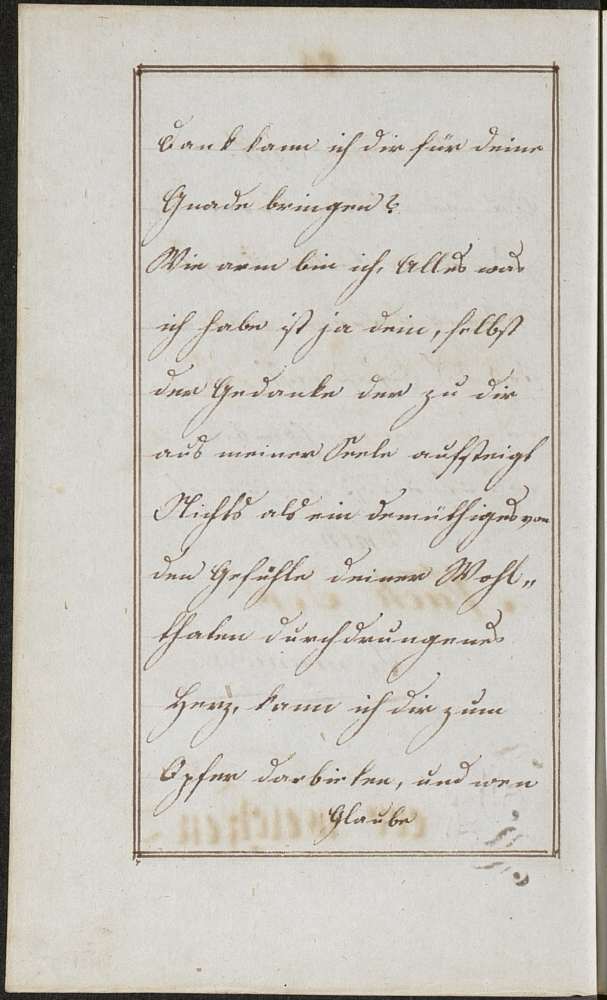 Dank kann ich dir für deine
Gnade bringen?
Wie arm bin ich, Alles was
ich habe ist ja dein, selbst
der Gedanke der zu dir
aus meiner Seele aufsteigt
Nichts als ein demüthiges von
den Gefühle deiner Wohl„
thaten durchdrungenes
Herz, kann ich dir zum
Opfer darbieten, und wen
Glaube